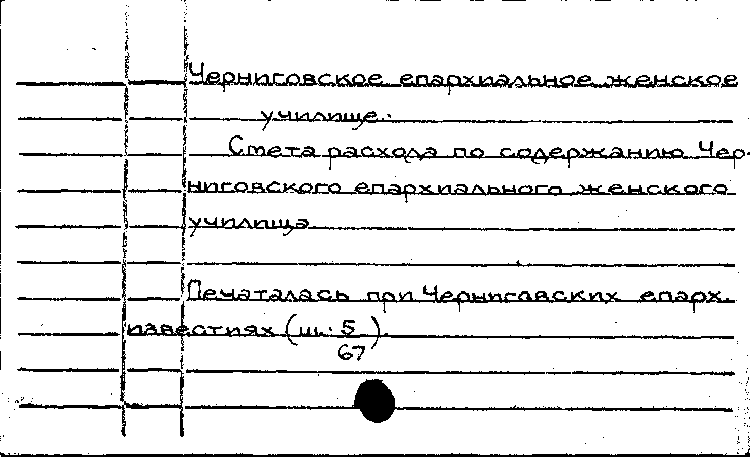 Черниговское епархиальное женское
училище.
Смета расхода по содержанию Чер-
ниговского епархиального женского
училища
Печаталась при Черниговских епарх.
известиях (ш. 5/67)